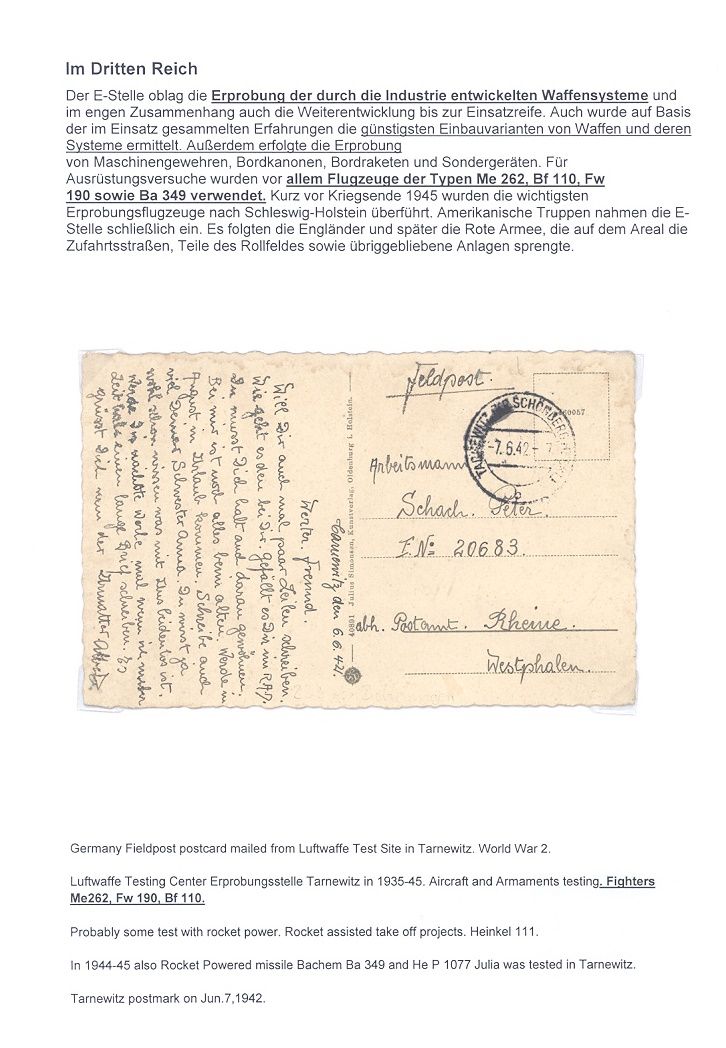 Im Dritten Reich
Der E-Stelle oblag die Erprobung der durch die Industrie entwickelten Waffensysteme und
im engen Zusammenhang auch die Weiterentwicklung bis zur Einsatzreife. Auch wurde auf Basis
der im Einsatz gesammelten Erfahrungen die günstigsten Einbauvarianten von Waffen und deren
Systeme ermittelt. Außerdem erfolgte die Erprobung
von Maschinengewehren, Bordkanonen, Bordraketen und Sondergeräten. Für
Ausrüstungsversuche wurden vor allem Flugzeuge der Typen Me 262, Bf 110, Fw
190 sowie Ba 349 verwendet. Kurz vor Kriegsende 1945 wurden die wichtigsten
Erprobungsflugzeuge nach Schleswig-Holstein überführt. Amerikanische Truppen nahmen die E-
Stelle schließlich ein. Es folgten die Engländer und später die Rote Armee, die auf dem Areal die
Zufahrtsstraßen, Teile des Rollfeldes sowie übriggebliebene Anlagen sprengte.
Tarnewitz den 6.6.42.
Werter Freund.
Will Dir auch mal paar Zeilen schreiben.
Wie geht es den bei Dir. gefällt es Dir im RAD.
Du musst Dich halt auch daran gewöhnen.
Bei mir ist noch alles beim alten. Werde im
August in Urlaub kommen. Schreibe auch
viel Deiner Schwester Anna. Du wirst ja
wohl schon wissen was mit los ist.
Werde Dir nächste Woche mal wenn ich mehr
Zeit habe einen lange Brief schreiben. Es
grüsst Dich nun der
40891 Julius Simonsen, Kunstverlag, Oldenburg i. Holstein.
Feldpost.
TARNEWITZ SCHÖNBERG
-7.6.42-
Arbeitsmann
Schach. Peter.
E.No 20683.
abh. Postamt. Rheine.
Westphalen.
Germany Fieldpost postcard mailed from Luftwaffe Test Site in Tarnewitz. World War 2.
Luftwaffe Testing Center Erprobungsstelle Tarnewitz in 1935-45. Aircraft and Armaments testing. Fighters
Me262, Fw 190, Bf 110.
Probably some test with rocket power. Rocket assisted take off projects. Heinkel 111.
In 1944-45 also Rocket Powered missile Bachem Ba 349 and He P 1077 Julia was tested in Tarnewitz.
Tarnewitz postmark on Jun.7,1942.